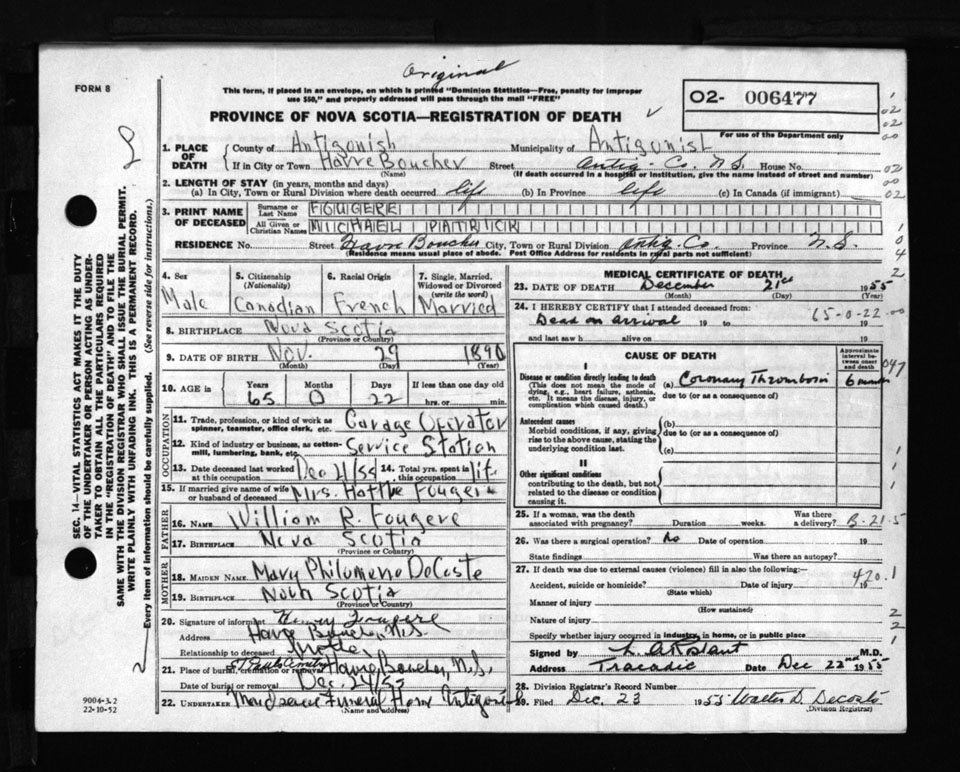 Original
FORM 8
This form, if placed in an envelope, on which is printed "Dominion Statistics—Free, penalty for improper
use $50," and properly addressed will pass through the mail "FREE"
PROVINCE OF NOVA SCOTIA—REGISTRATION OF DEATH
02- 006477
For use of the Department only
SEC. 14—VITAL STATISTICS ACT MAKES IT THE DUTY
OF THE UNDERTAKER OR PERSON ACTING AS UNDER-
TAKER TO OBTAIN ALL THE PARTICULARS REQUIRED
IN THE "REGISTRATION OF DEATH" AND TO FILE THE
SAME WITH THE DIVISION REGISTRAR WHO SHALL ISSUE THE BURIAL PERMIT.
WRITE PLAINLY WITH UNFADING INK. THIS IS A PERMANENT RECORD.
Every item of information should be carefully supplied. (See reverse side for instructions.)
1. PLACE OF DEATH County of Antigonish Municipality of Antigonish
If in City or Town Havre Boucher Street Antig. Co. N.S. House No.
(Name) (If death occurred in a hospital or institution, give the name instead of street and number)
2. LENGTH OF STAY (in years, months and days)
(a) In City, Town or Rural Division where death occurred life (b) In Province life (c) In Canada (if immigrant)
3. PRINT NAME OF DECEASED Surname or Last Name FOUGERE
All Given or Christian Names MICHAEL PATRICK
RESIDENCE No. Street Havre Boucher City, Town or Rural Division Antig. Co. Province N.S.
(Residence means usual place of abode. Post Office Address for residents in rural parts not sufficient)
4. Sex Male
5. Citizenship (Nationality) Canadian
6. Racial Origin French
7. Single, Married, Widowed or Divorced (write the word) Married
8. BIRTHPLACE Nova Scotia
(Province or Country)
9. DATE OF BIRTH Nov. 29 1890
(Month) (Day) (Year)
10. AGE in Years 65 Months 0 Days 22 If less than one day old hrs. or min.
OCCUPATION
11. Trade, profession, or kind of work as spinner, teamster, office clerk, etc. Garage Operator
12. Kind of industry or business, as cotton-mill, lumbering, bank, etc. Service Station
13. Date deceased last worked at this occupation Dec /55 14. Total yrs. spent in this occupation life
15. If married give name of wife or husband of deceased Mrs. Hattie Fougere
FATHER
16. NAME William R. Fougere
17. BIRTHPLACE Nova Scotia
(Province or Country)
MOTHER
18. MAIDEN NAME Mary Philomene DeCoste
19. BIRTHPLACE Nova Scotia
(Province or Country)
20. Signature of informant Fougere
Address Havre Boucher, N.S.
Relationship to deceased
21. Place of burial, cremation or removal St Pauls Cemetery Havre Boucher, N.S.
Date of burial or removal Dec. 24/55
22. UNDERTAKER Funeral Home Antigonish
(Name and address)
9004-3.2
22-10-52
MEDICAL CERTIFICATE OF DEATH
23. DATE OF DEATH December 21st 1955
(Month) (Day) (Year)
24. I HEREBY CERTIFY that I attended deceased from:
Dead on arrival 19 to 19
65-0-22-00
and last saw h alive on 19
CAUSE OF DEATH
Approximate interval between onset and death
I
Disease or condition directly leading to death (a) Coronary Thrombosis
(This does not mean the mode of dying, e.g., heart failure, asthenia, etc. It means the disease, injury, or complication which caused death.)
due to (or as a consequence of)
Antecedent causes (b)
Morbid conditions, if any, giving rise to the above cause, stating the underlying condition last.
due to (or as a consequence of)
(c)
II
Other significant conditions
contributing to the death, but not related to the disease or condition causing it.
25. If a woman, was the death associated with pregnancy? Duration weeks. Was there a delivery? B-21-5
26. Was there a surgical operation? No Date of operation 19
State findings Was there an autopsy?
27. If death was due to external causes (violence) fill in also the following:—
Accident, suicide or homicide? Date of injury 19
420.1
(State which)
Manner of injury
(How sustained)
Nature of injury
Specify whether injury occurred in industry, in home, or in public place
Signed by M.D.
Address Tracadie Date Dec 22nd 1955
28. Division Registrar's Record Number
29. Filed Dec. 23 1955 Walter D. DeCoste
(Division Registrar)